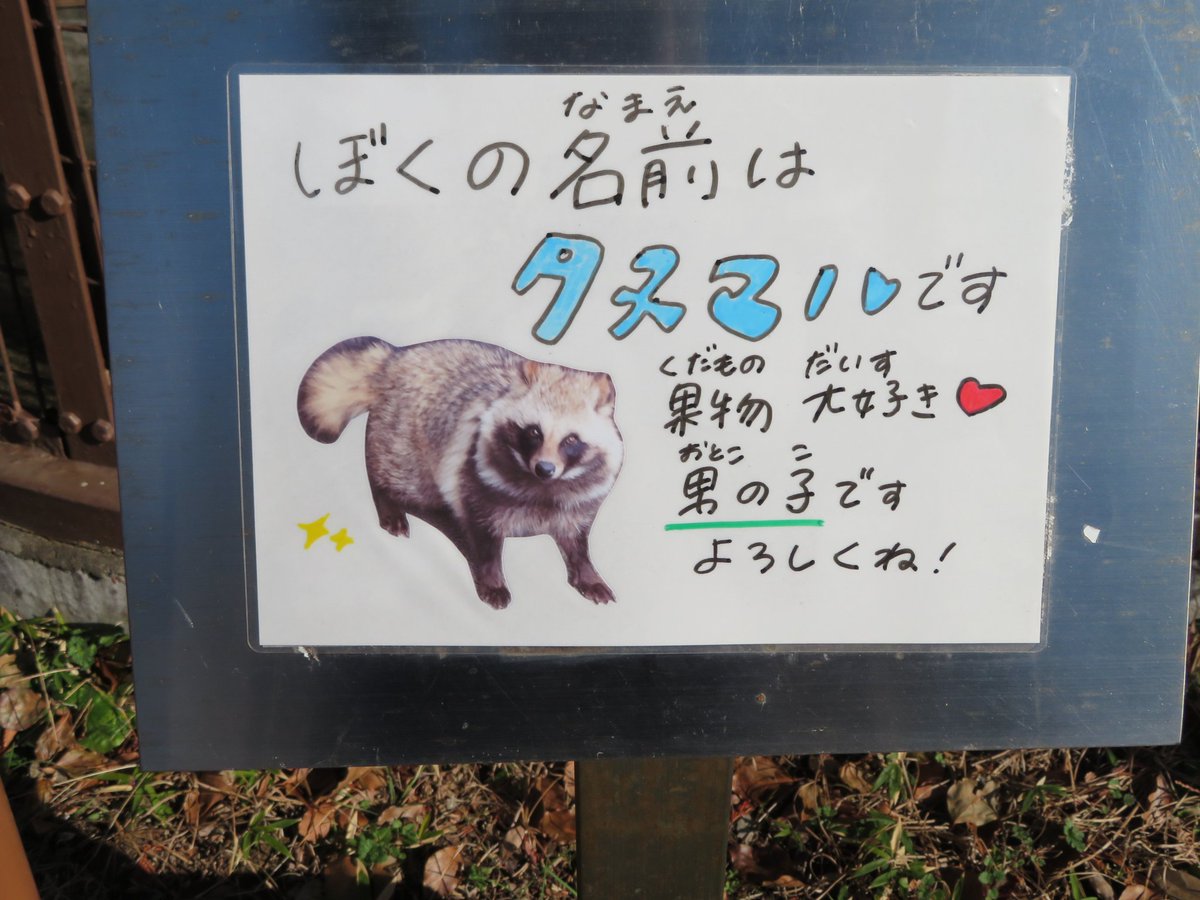 なまえ
ぼくの名前は
タヌマルです
くだもの だいす
果物 大好き
おとこ こ
男の子です
よろしくね!